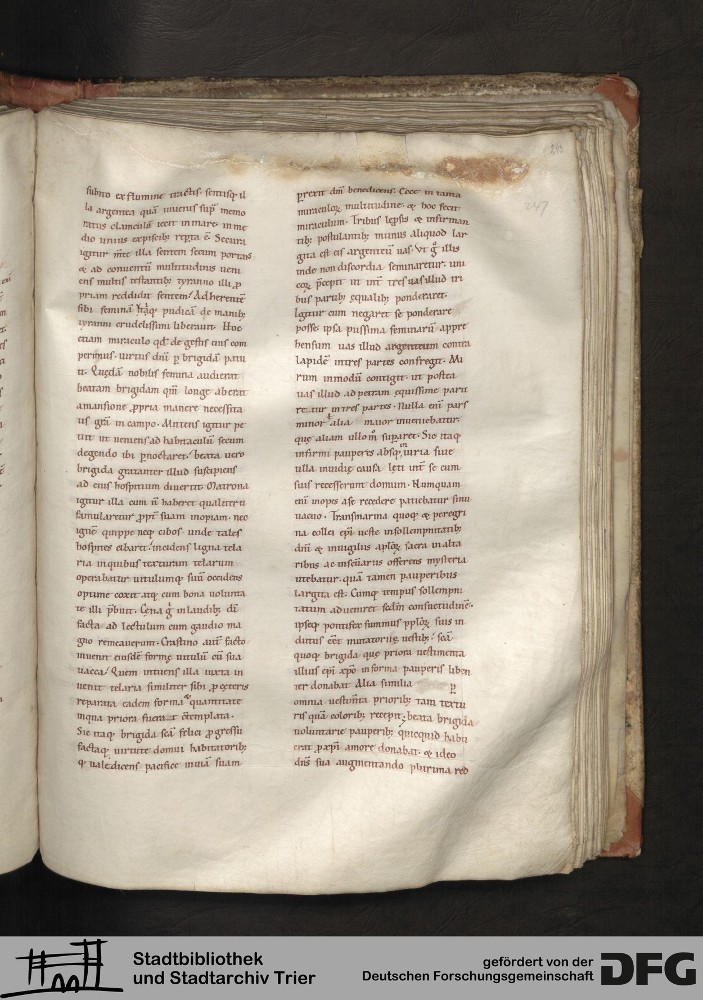 subito ex flumine tractis. sentisq; il
la argentea quā intueris sup̄ memo
ratus clamculū iecit in mare. in me
dio unius ex piscib; repta ē. Secura
igitur m̄te illa sentem secum portans
& ad conuentū multitudinis ueni
ens multis testantib; tyranno illi p
priam reddidit sentem. Adherentē
sibi feminā pudicā de manib;
tyranni crudelissimi liberauit. Hoc
etiam miraculo qd' de gestis eius com
perimus. uirtus dn̄i p brigidā patu
it. Quędā nobilis femina audierat
beatam brigidam qm̄ longe aberat
a mansione ppria manere necessita
tis gr̄a in campo. Mittens igitur pe
tiit ut ueniens ad habitaculū secum
degendo ibi pnoctaret. beata uero
brigida gratanter illud suscipiens
ad eius hospitium diuertit. Matrona
igitur illa cum n̄ haberet qualiter ei
famularetur ppt̄ suam inopiam. nec
ignē quippe neq; cibos. unde tales
hospites cibaret. incidens ligna tela
ria in quibus texturam telarum
operabatur. uitulumq; suū occidens
optime coxit. atq; cum bona uolunta
te illi p̄buit. Cęna g° in laudib; dī
facta. ad lectulum cum gaudio ma
gno remeauerunt. Crastino aut̄ facto
inuenit eiusdē formę uitulū cū sua
uacca. Quem intuens illa iuxta in
uenit telaria similiter sibi p exteris
reparata eadem forma & quantitate
in qua priora fuerat cōtemplata.
Sic itaq; brigida sc̄a felici pgressu
factaq; uirtute domui habitatorib;
q; uale dicens pacifice in uiā suam
prexit dn̄m benedicens. Ecce in tanta
miraculoꝝ multitudine. & hoc fecit
miraculum. Tribus leprosis & infirman
tib; postulantib; munus aliquod lar
gita est eis argenteū uas. Ut g° illis
inde non discordia seminaretur. uni
eoꝝ p̄cepit ut int̄ tres uas illud tri
bus partib; equalib; ponderaret.
Igitur cum negaret se ponderare
posse. ipsa piissima feminarū appre
hensum uas illud argenteum contra
lapidē in tres partes confregit. Mi
rum in modū contigit. ut postea
uas illud ad petram equissime parti
retur in tres partes. Nulla eni pars
minor alia t maior inueniebatur.
que aliam ullo m̄ supaꝛet. Sic itaq;
infirmi pauperes absq; iniuria siue
ulla inuidię causa lęti int̄ se cum
suis recesserunt domum. Numquam
eni inopes a se recedere patiebatur sinu
uacuo. Transmarina quoq; & peregri
na conlei epī ueste in sollempnitatib;
dn̄i & in uigiliis aploꝝ sacra in alta
ribus ac misteriis offerens mysteria
utebatur. quā tamen pauperibus
largita est. Cumq; tempus sollempni
tatum adueniret secdm̄ consuetudinē.
ipseq; pontifex summus pploꝝ suis in
dutus eet mutatoriis uestib;. sc̄a
quoq; brigida que priora uestimenta
illius epī xpo in forma pauperis liben
ter donabat. Alia similia p
omnia uestim̄ta priorib; tam textu
ris quā colorib; recepit; beata brigida
uoluntarie pauperib; quicquid habu
erat p xp̄i amore donabat. & ideo
dn̄s sua augmentando plurima red
Stadtbibliothek
und Stadtarchiv Trier
gefördert von der
Deutschen Forschungsgemeinschaft
DFG